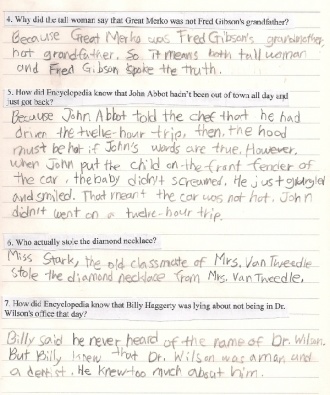 4. Why did the tall woman say that Great Merko was not Fred Gibson's grandfather?
Because Great Merko was Fred Gibson's grandmother
not grandfather. So it means both tall woman
and Fred Gibson spoke the truth.
5. How did Encyclopedia know that John Abbot hadn't been out of town all day and
just got back?
Because John Abbot told the chef that he had
driven the twelve-hour trip, then, the hood
must be hot if John's words are true. However,
when John put the child on the front fender of
the car, the baby didn't screamed. He just gurgled
and smiled. That meant the car was not hot. John
didn't went on a twelve-hour trip.
6. Who actually stole the diamond necklace?
Miss Stark, the old classmate of Mrs. Van Tweedle
stole the diamond necklace from Mrs. Van Tweedle.
7. How did Encyclopedia know that Billy Haggerty was lying about not being in Dr.
Wilson's office that day?
Billy said he never heard of the name of Dr. Wilson.
But Billy knew that Dr. Wilson was a man and
a dentist. He knew too much about him.